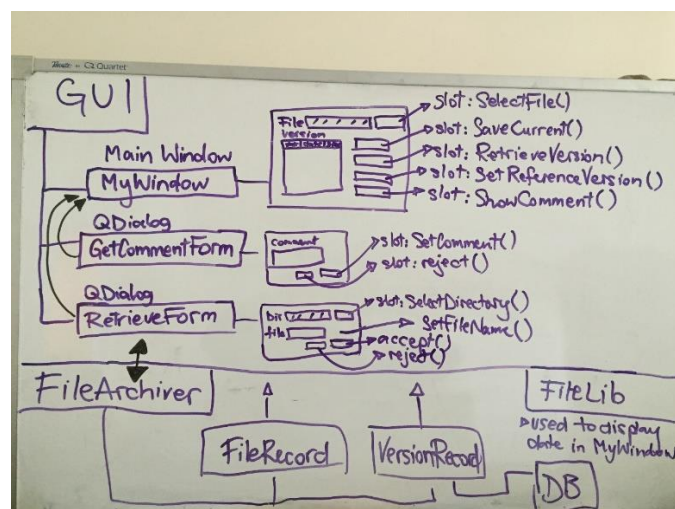 C2 Quartet
GUI
Main Window
MyWindow
File
version
slot: SelectFile()
slot: SaveCurrent()
slot: RetrieveVersion()
slot: SetReferenceVersion()
slot: ShowComment()
QDialog
GetCommentForm
comment
slot: SetComment()
slot: reject()
QDialog
RetrieveForm
Dir
file
slot: SelectDirectory()
SetFileName()
accept()
reject()
FileArchiver
FileLib
used to display
date in MyWindow
FileRecord
VersionRecord
DB